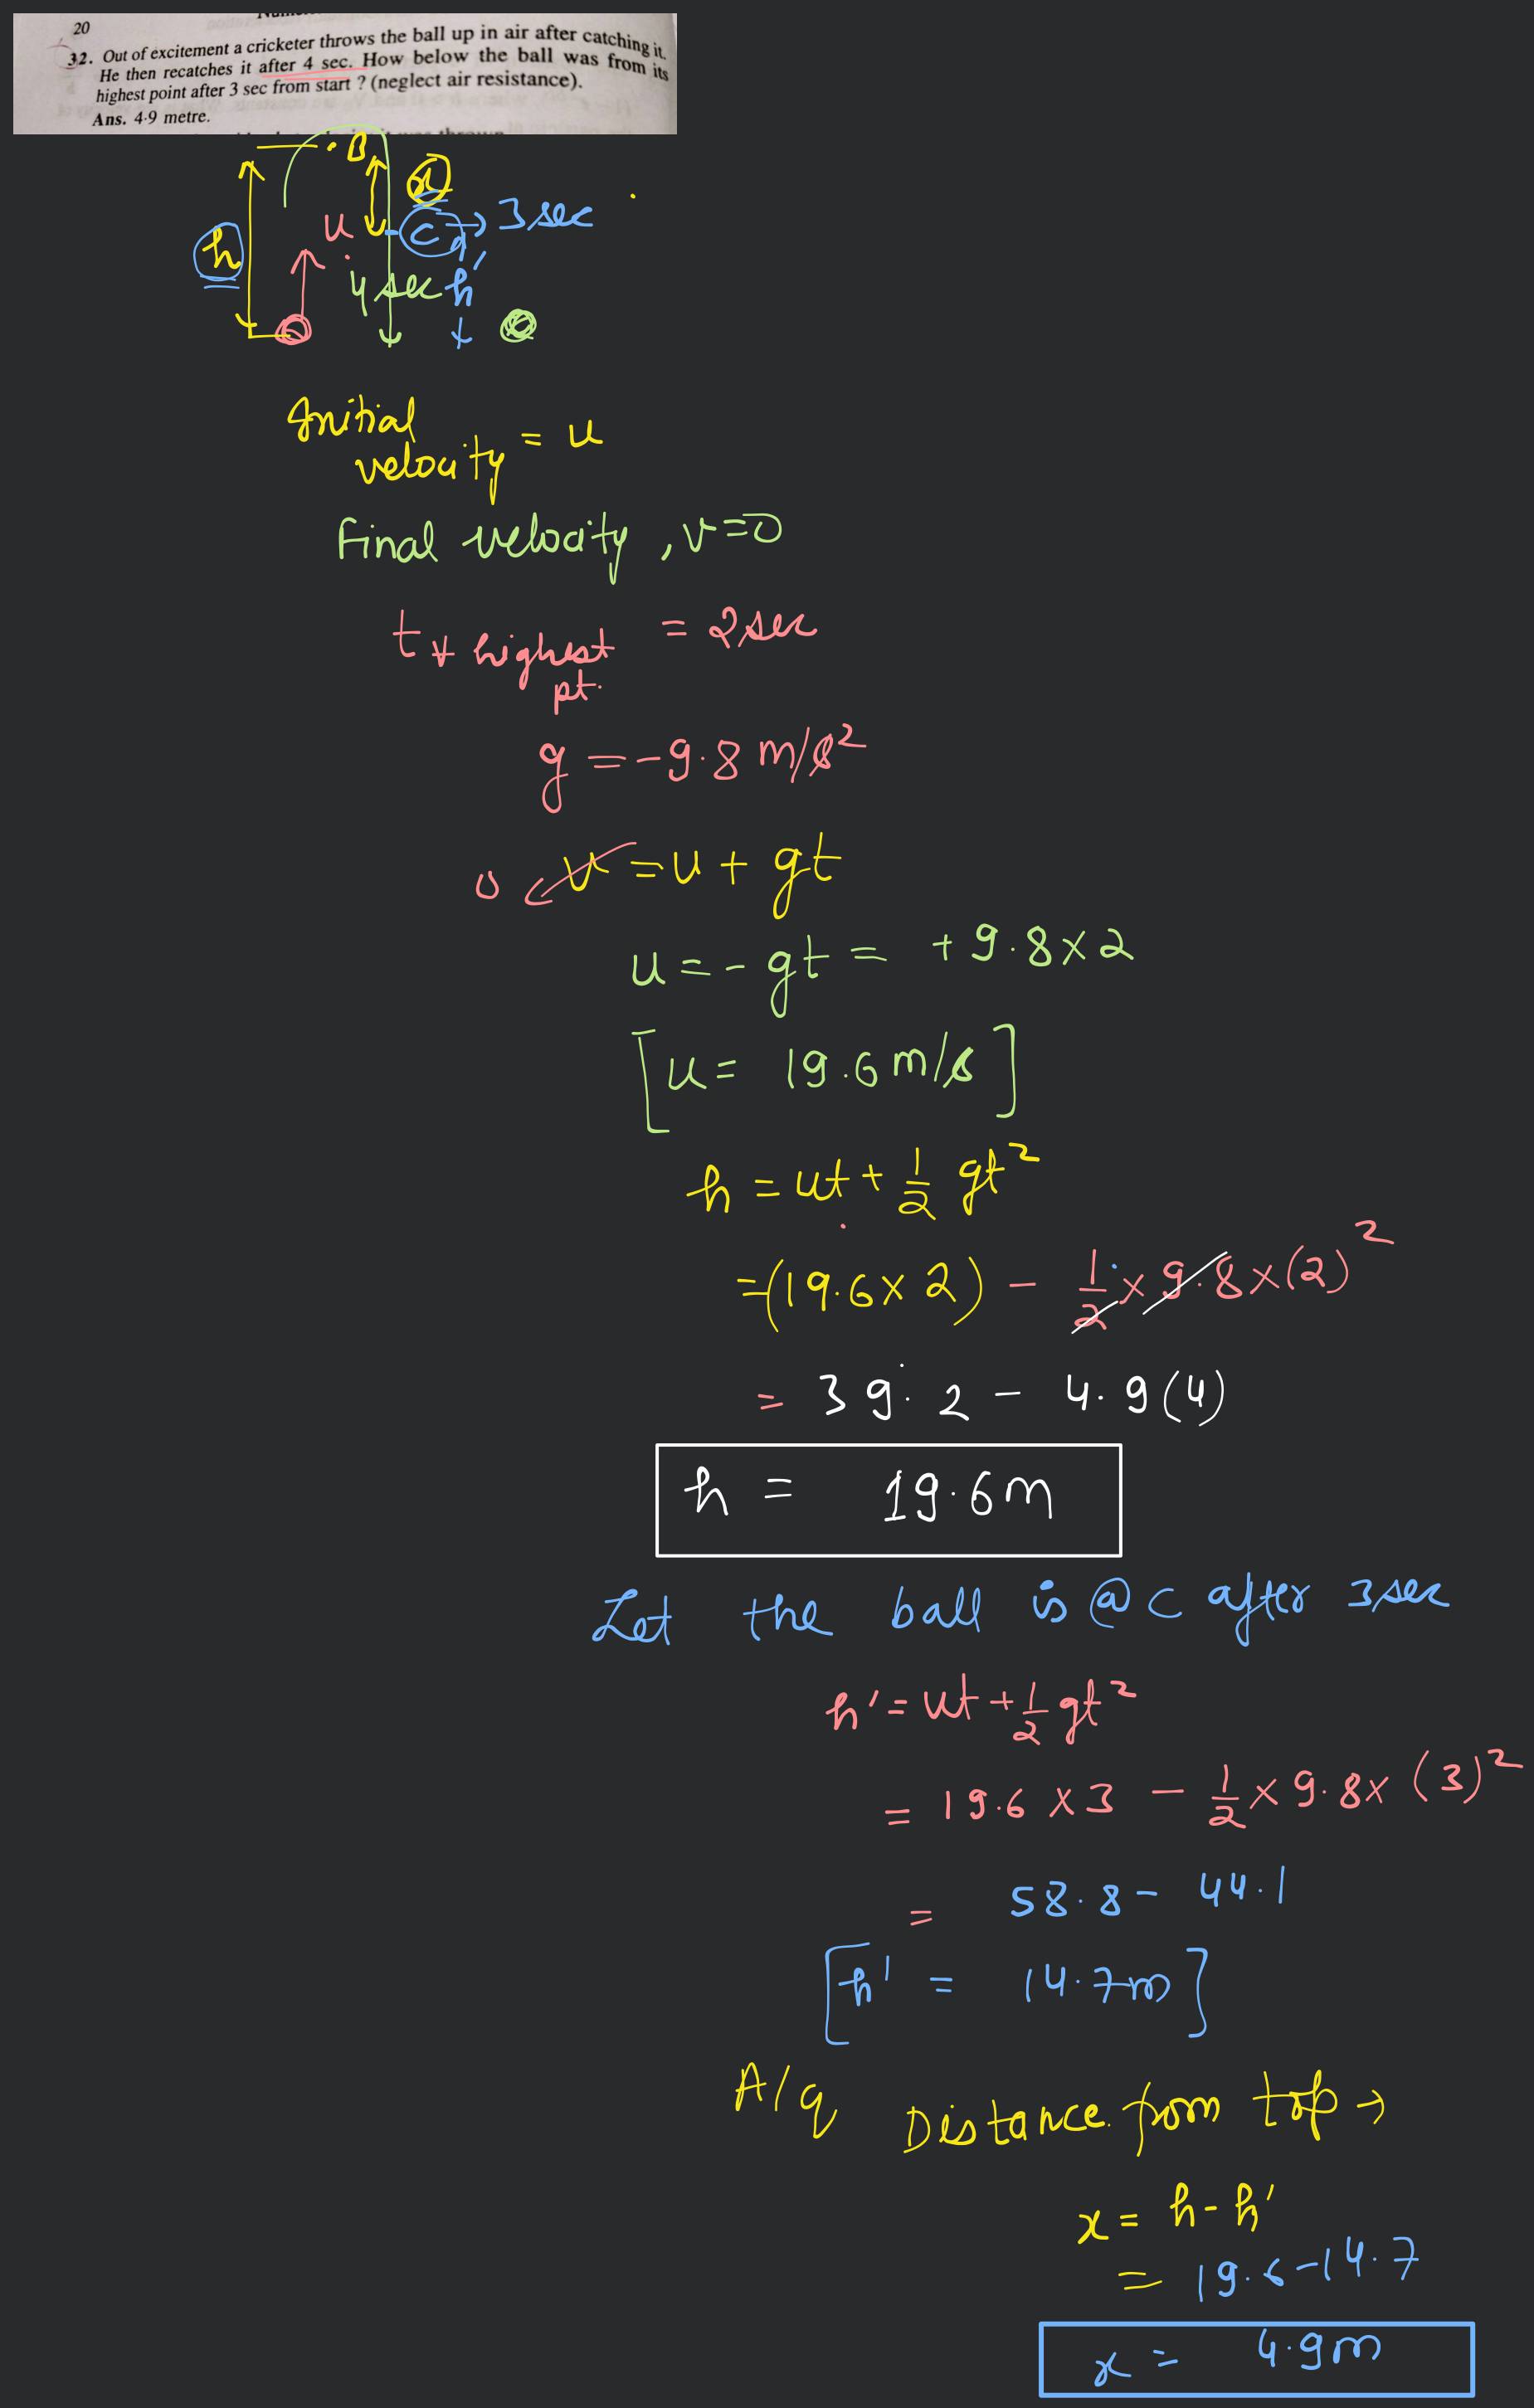 20
32. Out of excitement a cricketer throws the ball up in air after catching it.
He then recatches it after 4 sec. How below the ball was from its
highest point after 3 sec from start ? (neglect air resistance).
Ans. 4·9 metre.
B
x
u
C → 3 sec
h
4 sec h'
Initial
velocity = u
Final velocity, v=0
t → highest pt. = 2 sec
g = -9.8 m/s²
0 ← v = u + gt
u = - gt = +9.8×2
[u = 19.6 m/s]
h = ut + 1/2 gt²
=(19.6×2) - 1/2 × 9.8×(2)²
= 39.2 - 4.9(4)
h = 19.6m
Let the ball is @ C after 3 sec
h' = ut + 1/2 gt²
= 19.6 × 3 - 1/2 × 9.8× (3)²
= 58.8 - 44.1
[h' = 14.7m]
A/q Distance from top →
x = h - h'
= 19.6-14.7
x = 4.9m